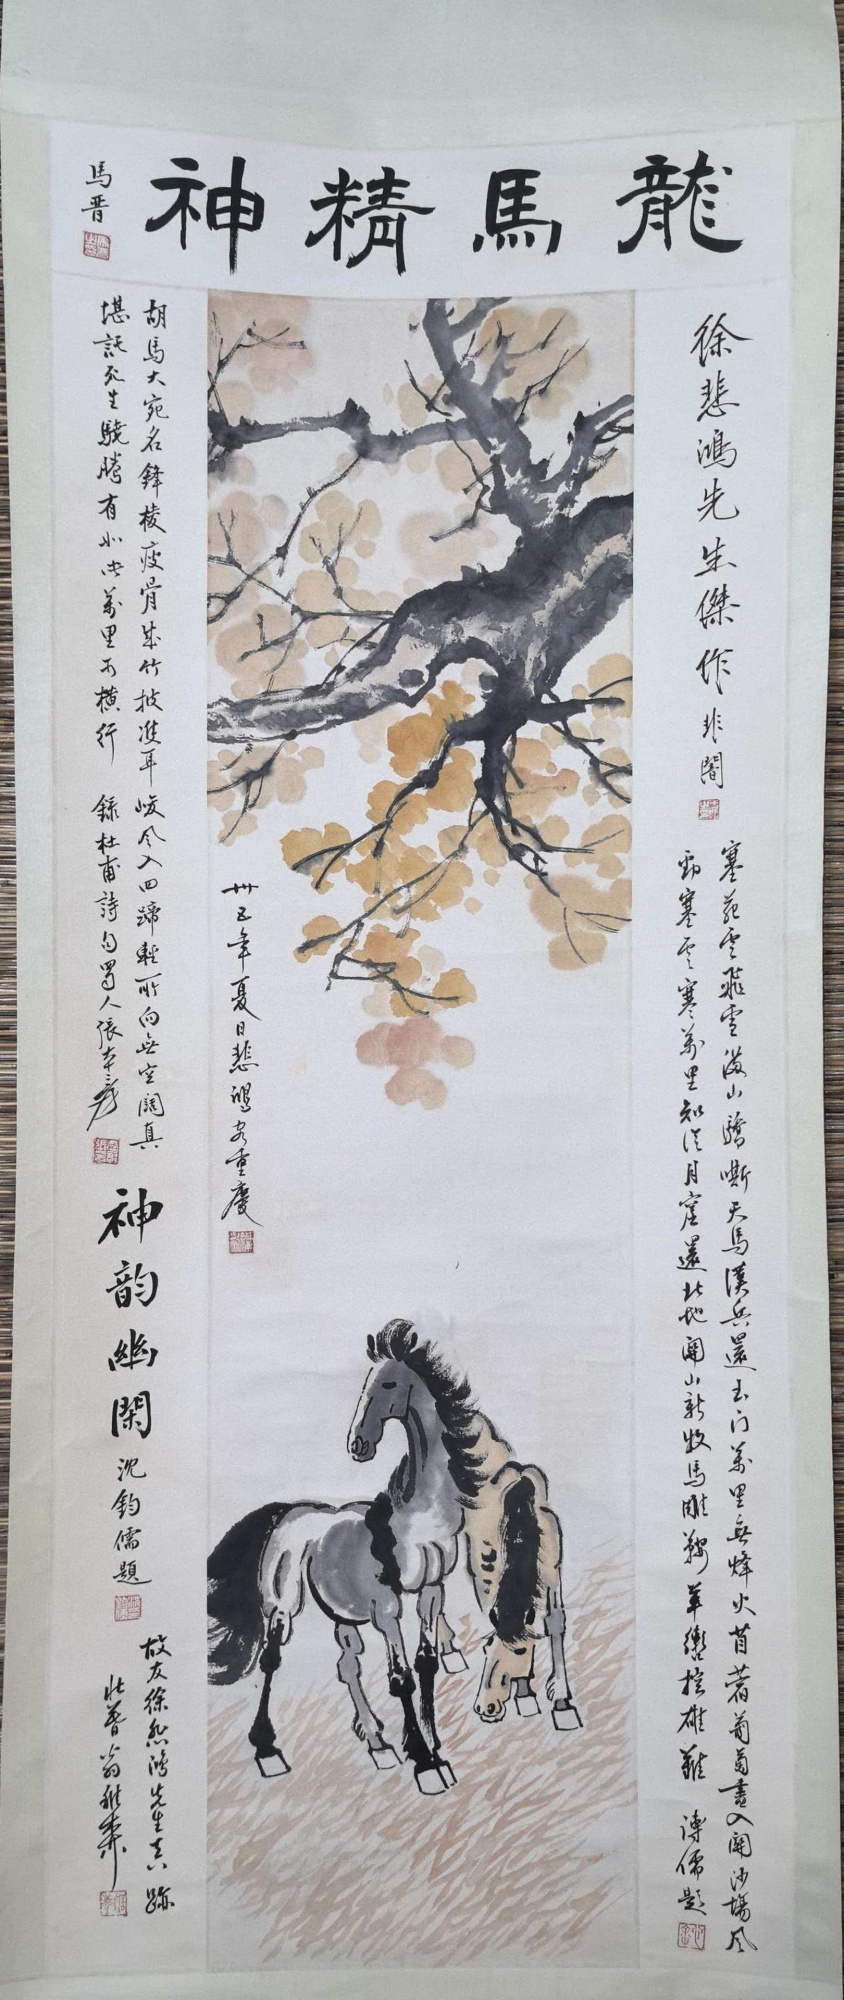 龍馬精神
馬晋
徐悲鴻先生傑作 非闇
塞苑雲飛雪滿山驕嘶天馬漢兵還玉门萬里無烽火苜蓿葡萄盡入關沙場风
勁塞雲寒萬里知從月窟還北地關山新牧馬雕鞍革轡控雄難 溥儒題
卅五年夏日悲鴻客重慶
胡馬大宛名鋒棱瘦骨成竹披雙耳峻风入四蹄輕所向無空闊真
堪託死生驍騰有如此萬里可横行 錄杜甫詩句蜀人張大千爰
神韵幽閑
沈鈞儒題
故友徐悲鴻先生真跡
壯暮翁稚柳